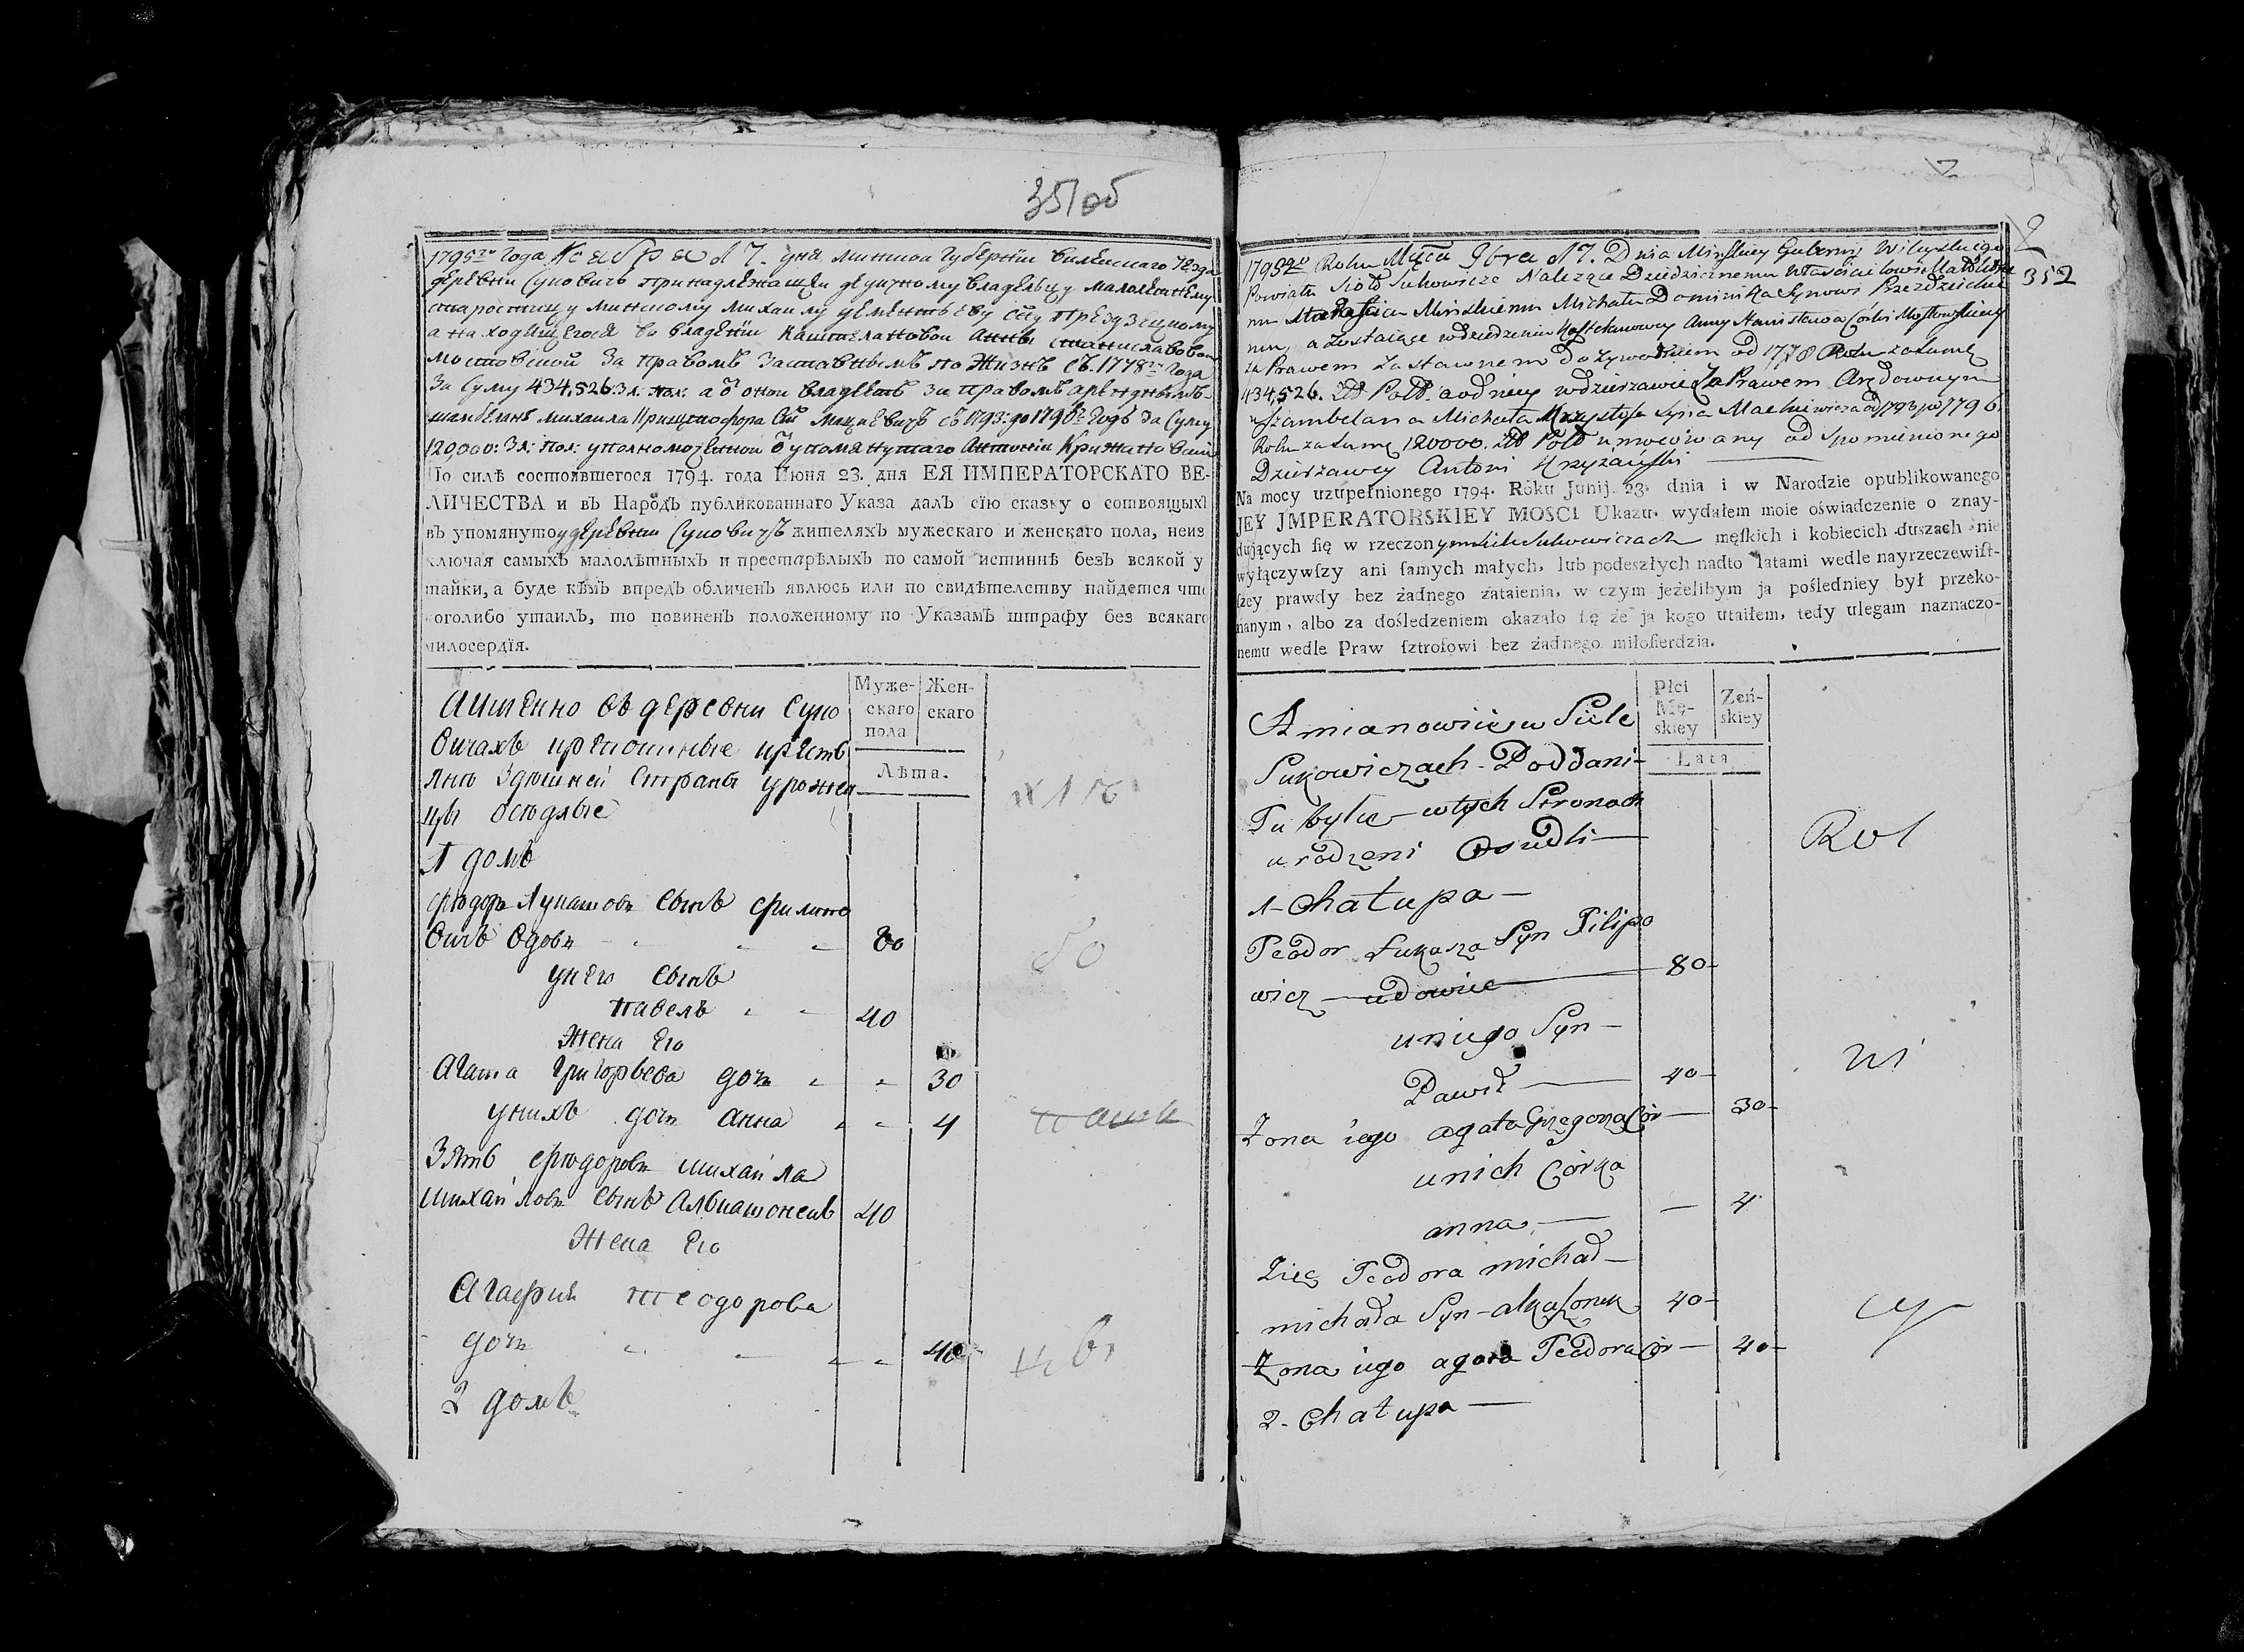 351об
1795го Года Ноября 17. дня Минской Губернии Вилейскаго уезда
деревни Суковичъ принадлежащей дедичному владельцу малолетнему
старостицу Минскому Михаилу Дементьеву сну Прездзецкому
а находящегося во владении Каштелановой Анны Станиславовой
Мостовской за правомъ заставнымъ по жизнь съ 1778го года
за суму 434,526: зл. пол: а от оной владеетъ за правомъ аренднымъ
шамбелянъ Михаила Крищтофора снъ Мацкевичъ съ 1793. до 1796го Годъ за суму
120000: Зл: пол: уполномоченной от упомянутаго Антоній Крижановскій
По силѣ состоявшегося 1794. года Июня 23. дня ЕЯ ИМПЕРАТОРСКАГО ВЕ-
ЛИЧЕСТВА и въ Народъ публикованнаго Указа далъ сїю сказку о сотвоящыхъ
въ упомянутоу деревни Суковичъ жителяхъ мужескаго и женскаго пола, неиз
ключая самыхъ малолѣтныхъ и престарѣлыхъ по самой истиннѣ безъ всякой у
тайки, а буде кѣмъ впредъ обличенъ явлюсь или по свидѣтелству найдется что
коголибо утаилъ, то повиненъ положенному по Указамъ штрафу без всякаго
милосердїя.
Муже-
скаго
пола
Жен-
скаго
Лѣта.
Аименно въ деревни Суко
вичахъ крепостные крестъ
яне здешней Страны урожен
цы оседлые
1 домъ
Фіодоръ Лукашовъ сынъ Филипо
вичъ вдовъ 80
у него сынъ
Павелъ 40
Жена Его
Агата Григорьева дочь 30
у нихъ дочь Анна 4
Зять Фіодоровъ Михайла
Михайловъ сынъ Алкашонекъ 40
Жена Его
Агафия Теодорова
дочь 40
2 домъ
2
352
1795go Roku Mca 9bra 17. Dnia Minskiey Gubernij Wileyskiego
Powiatu Sioło Sukowicze Należące Dziedzicznemu Właścicielowi Małoletnie
mu Starościcu Minskiemu Michału Dominika Synowi Przezdzieckie
mu, a zostaiące w dzierżeniu Kasztelanowey Anny Stanisława Córki Mostowskiey
za Prawem Zastawnem dożywotniem od 1778 Roku za sumę
434,526. Zło Pols. a od niey w dzierzawie Za Prawem Arędownym
u Szambelana Michała Krzysztofa Syna Mackiewicza od 1793 po 1796.
Roku za sumę 120000. Zło Pols umocowany od Spomnionego
Dzierżawcy Antoni Krzyżański
Na mocy uzupełnionego 1794. Róku Junij. 23. dnia i w Narodzie opublikowanego
JEY JMPERATORSKIEY MOSCI Ukazu. wydałem moie oświadczenie o znay-
dujących się w rzeczonym Siele Sukowiczach męſkich i kobiecich duszach nie
wyłączywſzy ani ſamych małych, lub podeszłych nadto latami wedle nayrzeczewiſt-
ſzey prawdy bez żadnego zataienia, w czym jeżelibym ja pośledniey był przeko-
nanym, albo za dośledzeniem okazało się że ja kogo utaiłem, tedy ulegam naznaczo-
nemu wedle Praw ſztroſowi bez żadnego miłoſierdzia.
Płci
Mę-
skiey
Zeń-
skiey
Lata
Amianowicie w Siele
Sukowiczach Poddani
Tu bylce w tych Stronach
urodzeni Osiedli
1- Chałupa
Teodor Łukasza Syn Filipo
wicz udowiec 80
u niego Syn
Paweł 40
Żona iego agata Grzegorza Cór 30
u nich Córka
anna 4
Zięć Teodora michał
michała Syn alkaſzonek 40
Żona iego agata Teodora Cór 40
2- Chałupa